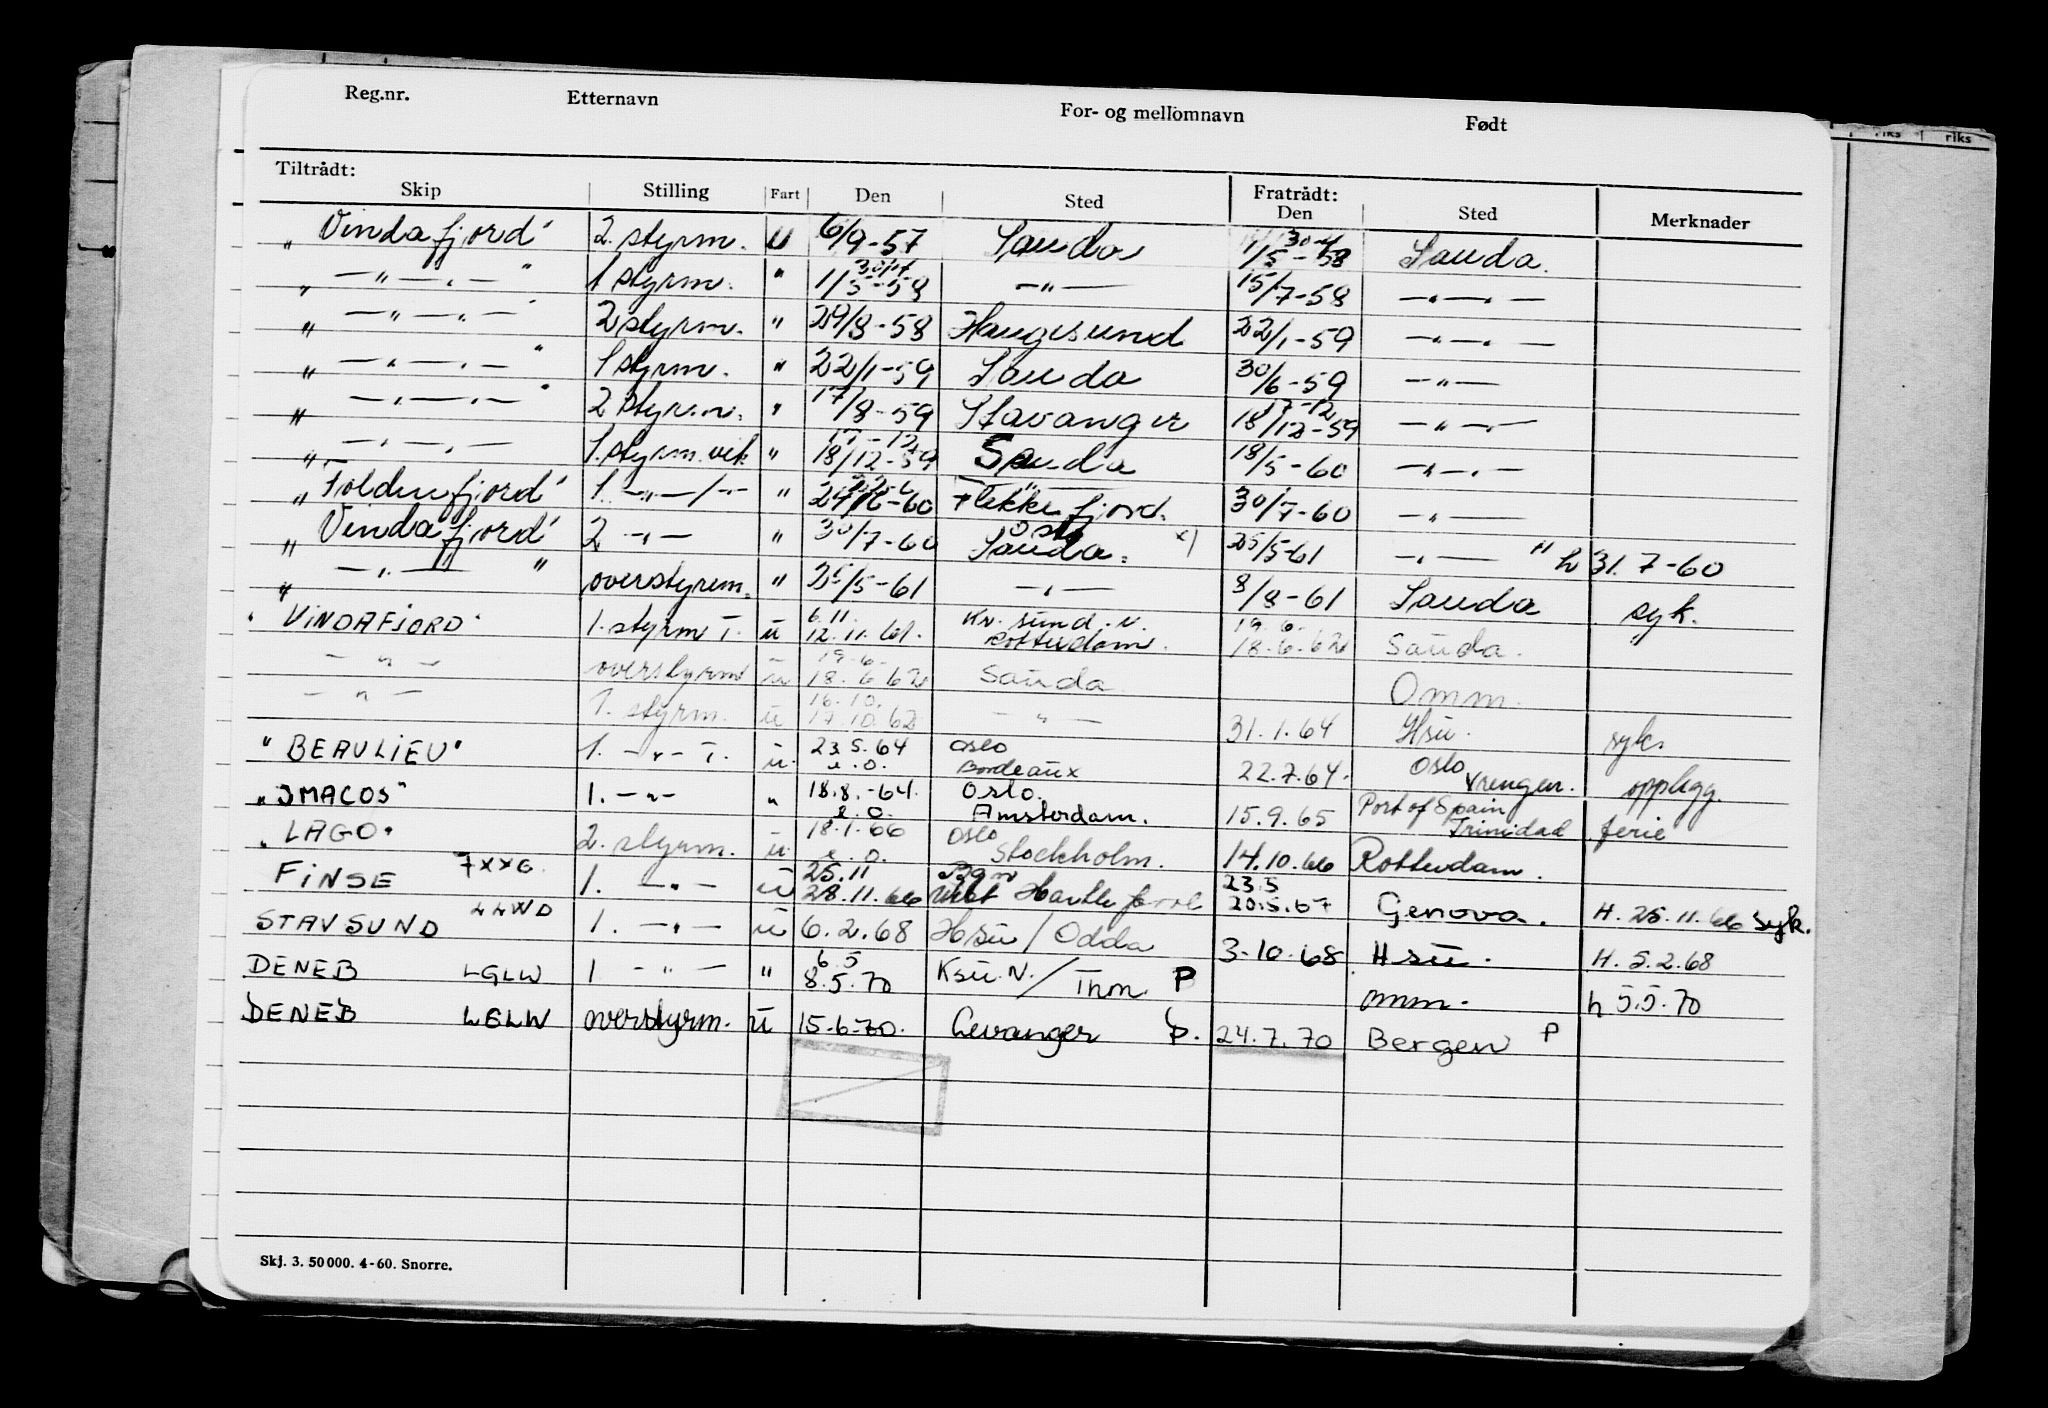 Reg.nr. Etternavn For- og mellomnavn Født
riks riks
Tiltrådt: Fratrådt:
Skip Stilling Fart Den Sted Den Sted Merknader
„ Vindafjord" 2. styrm. U 6/9-57 Sauda 30-4 1/5-58 Sauda.
„ —"—„—" 1 styrm. " 30/4 1/5-58 —"— 15/7-58 —„—„—
„ —"—„—" 2 styrm. " 29/8-58 Haugesund 22/1-59 —„—„—
„ —„—„—" 1 styrm. " 22/1-59 Sauda 30/6-59 —"—
„ —„—„—" 2 styrm. " 17/8-59 Stavanger 17-12 18/12-59 —"—
„ —„—„— 1. styrm. vik " 17-12 18/12-59 Sauda 18/5-60 —„—„—
„ Foldenfjord" 1. —„—/—"— " 24/6-60 Flekkefjord. 30/7-60 —„—
„ Vindafjord" 2 —„— " 30/7-60 Oslo Sauda. x) 25/5-61 —„— " h 31.7-60
„ —„— " overstyrm. " 25/5-61 —„— 8/8-61 Sauda syk.
" VINDAFJORD" 1. styrm I. u 6.11 12.11.61. Kr. sund. N. Rotterdam. 19.6. 18.6.62 Sauda. "
—"— overstyrm u 19.6. 18.6.62 Sauda Omm.
—"— 1. styrm. u 16.10. 17.10.62 —"— 31.1.64 Hsu. syk.
"BEAULIEU" 1. —„— I. u. 23.5.64 e.o. Oslo Bordeaux 22.7.64. Oslo Vrengen. opplegg.
"IMACOS" 1. —„— „ 18.8.-64. e.o. Oslo. Amsterdam. 15.9.65 Port of Spain Trinidad ferie
"LAGO" 2. styrm. u. 18.1.66 e.o. Oslo Stockholm. 14.10.66 Rotterdam.
FINSE 1. —„— u 25.11 28.11.66 Bgn West Hartlepool 23.5 20.5.67 Genova. H. 25.11.66 syk.
STAVSUND LLWD 1. —„— u 6.2.68 Hsu / Odda 3-10.68 Hsu. H. 5.2.68
DENEB LGLW 1 —„— " 6.5 8.5.70 Ksu. N. / Thm P omm. h 5.5.70
DENEB LGLW overstyrm. u 15-6-70. Levanger P. 24.7.70 Bergen P
Skj. 3. 50 000. 4-60. Snorre.